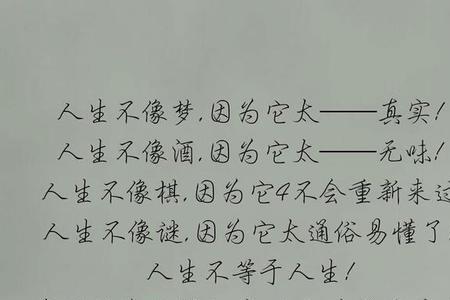 人生不像梦,因为它太——真实!
人生不像酒,因为它太——无味!
人生不像棋,因为它4不会重新来过
人生不像谜,因为它太通俗易懂了
人生不等于人生!